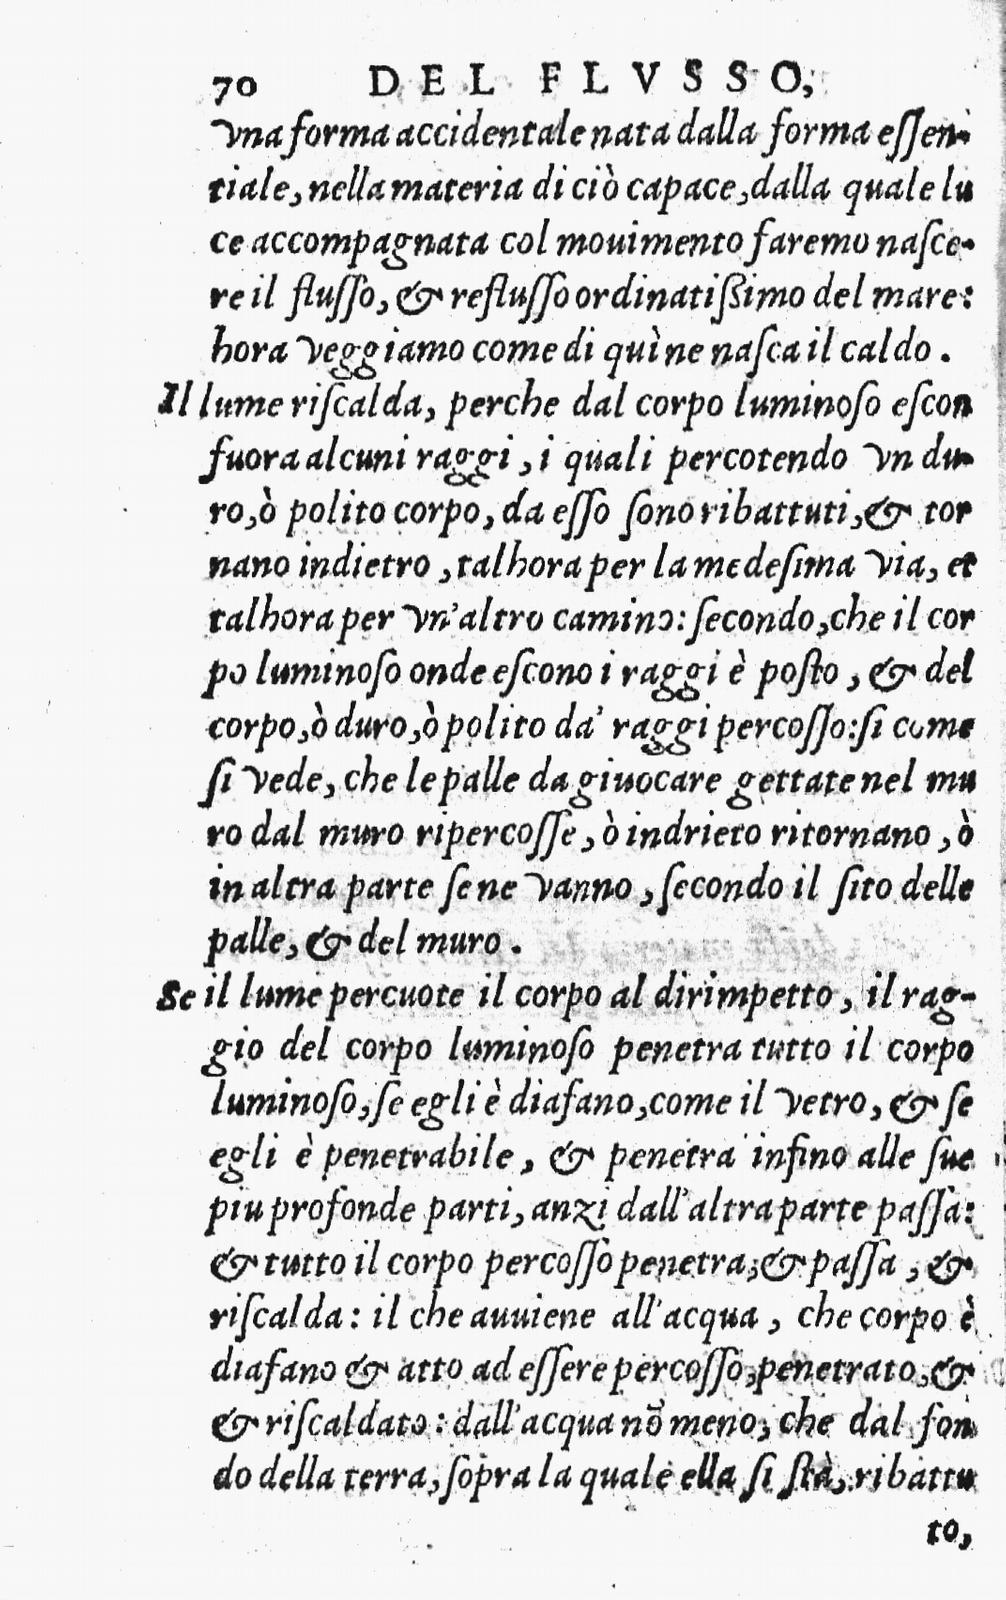 70 DEL FLVSSO,
vna forma accidentale nata dalla forma eſſen-
tiale, nella materia di ciò capace, dalla quale lu
ce accompagnata col mouimento faremo naſce-
re il fluſſo, & refluſſo ordinatiſsimo del mare:
hora veggiamo come di quì ne naſca il caldo.
Il lume riſcalda, perche dal corpo luminoſo eſcon
fuora alcuni raggi, i quali percotendo vn du-
ro, ò polito corpo, da eſſo ſono ribattuti, & tor
nano indietro, talhora per la medeſima via, et
talhora per vn'altro camino: ſecondo, che il cor
po luminoſo onde eſcono i raggi è poſto, & del
corpo, ò duro, ò polito da' raggi percoſſo: ſi come
ſi vede, che le palle da giuocare gettate nel mu
ro dal muro ripercoſſe, ò indrieto ritornano, ò
in altra parte ſene vanno, ſecondo il ſito delle
palle, & del muro.
Se il lume percuote il corpo al dirimpetto, il rag-
gio del corpo luminoſo penetra tutto il corpo
luminoſo, ſe egli è diafano, come il vetro, & ſe
egli è penetrabile, & penetra infino alle ſue
piu profonde parti, anzi dall'altra parte paſſa:
& tutto il corpo percoſſo penetra, & paſſa, &
riſcalda: il che auuiene all'acqua, che corpo è
diafano & atto ad eſſere percoſſo, penetrato, &
& riſcaldato: dall'acqua nō meno, che dal fon
do della terra, ſopra la quale ella ſi ſtà, ribattu
to,